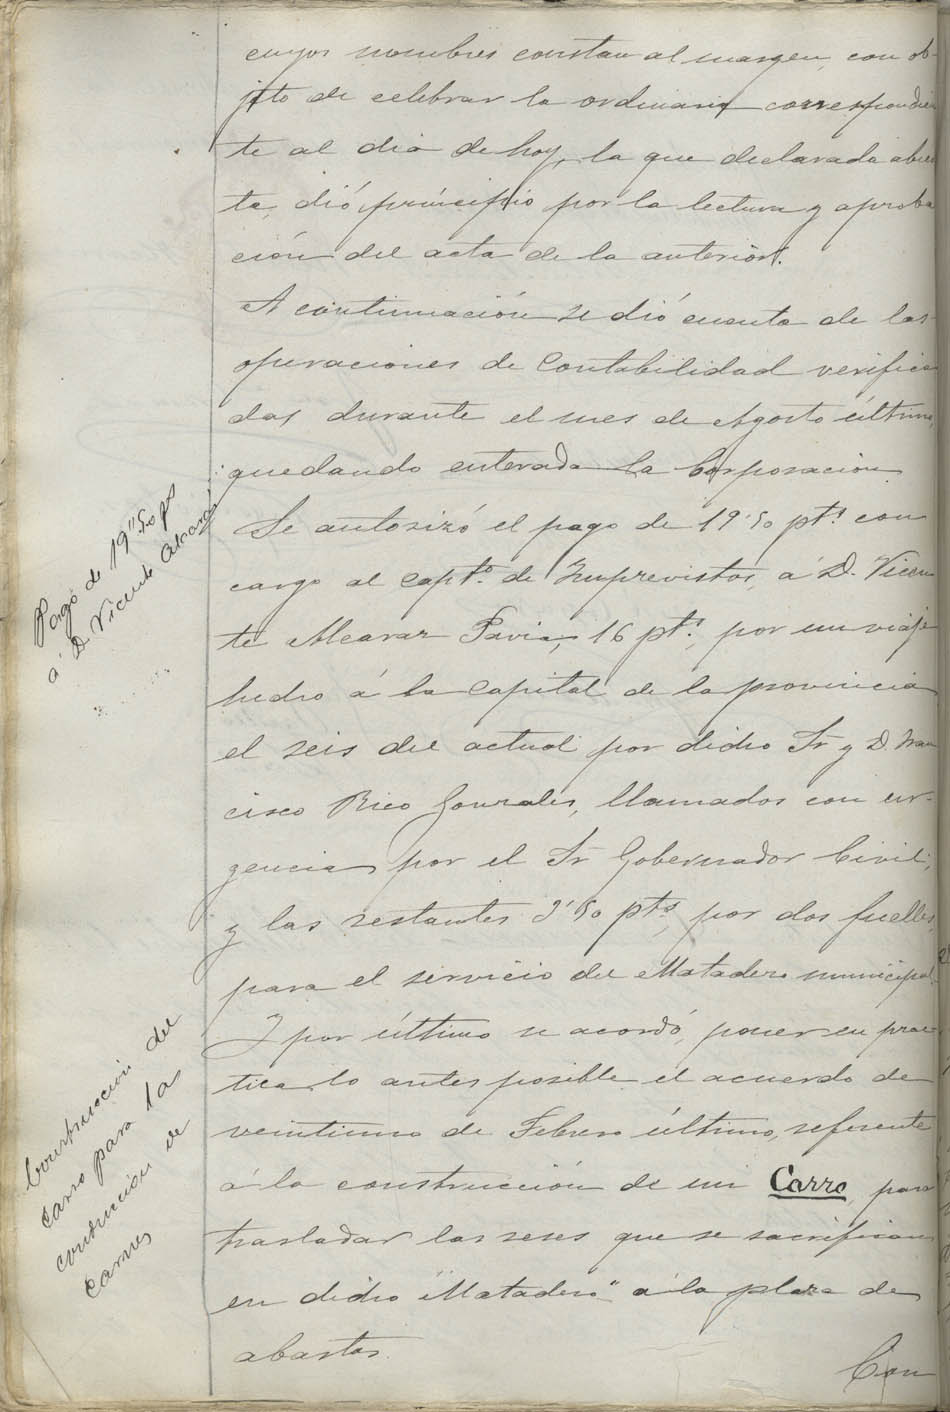 cuyos nombres constan al margen, con ob-
jeto de celebrar la ordinaria correspondien
te al dia de hoy, la que declarada abier
ta, dió principio por la lectura y aproba
ción del acta de la anterior.
A continuación se dió cuenta de las
operaciones de Contabilidad verifica
das durante el mes de Agosto último,
quedando enterada la Corporación.
Pago de 19"50 pts
á D. Vicente Alcaraz
Se autorizó el pago de 19'50 pts. con
cargo al capto. de Imprevistos, á D. Vicen
te Alcaraz Pavia, 16 pts., por un viaje
hecho á la Capital de la provincia
el seis del actual por dicho Sr y D. Fran
cisco Rico Gonzales, llamados con ur-
gencia por el Sr Gobernador Civil;
y las restantes 3'50 pts, por dos fuelles,
para el servicio del Matadero municipal.
Construccion del
Carro para la
conducción de
carnes
Y por último se acordó, poner en prac
tica lo antes posible el acuerdo de
veintiuno de Febrero último, referente
á la construcción de un Carro, para
trasladar las reses que se sacrifican
en dicho "Matadero" a la plaza de
abastos.
Con